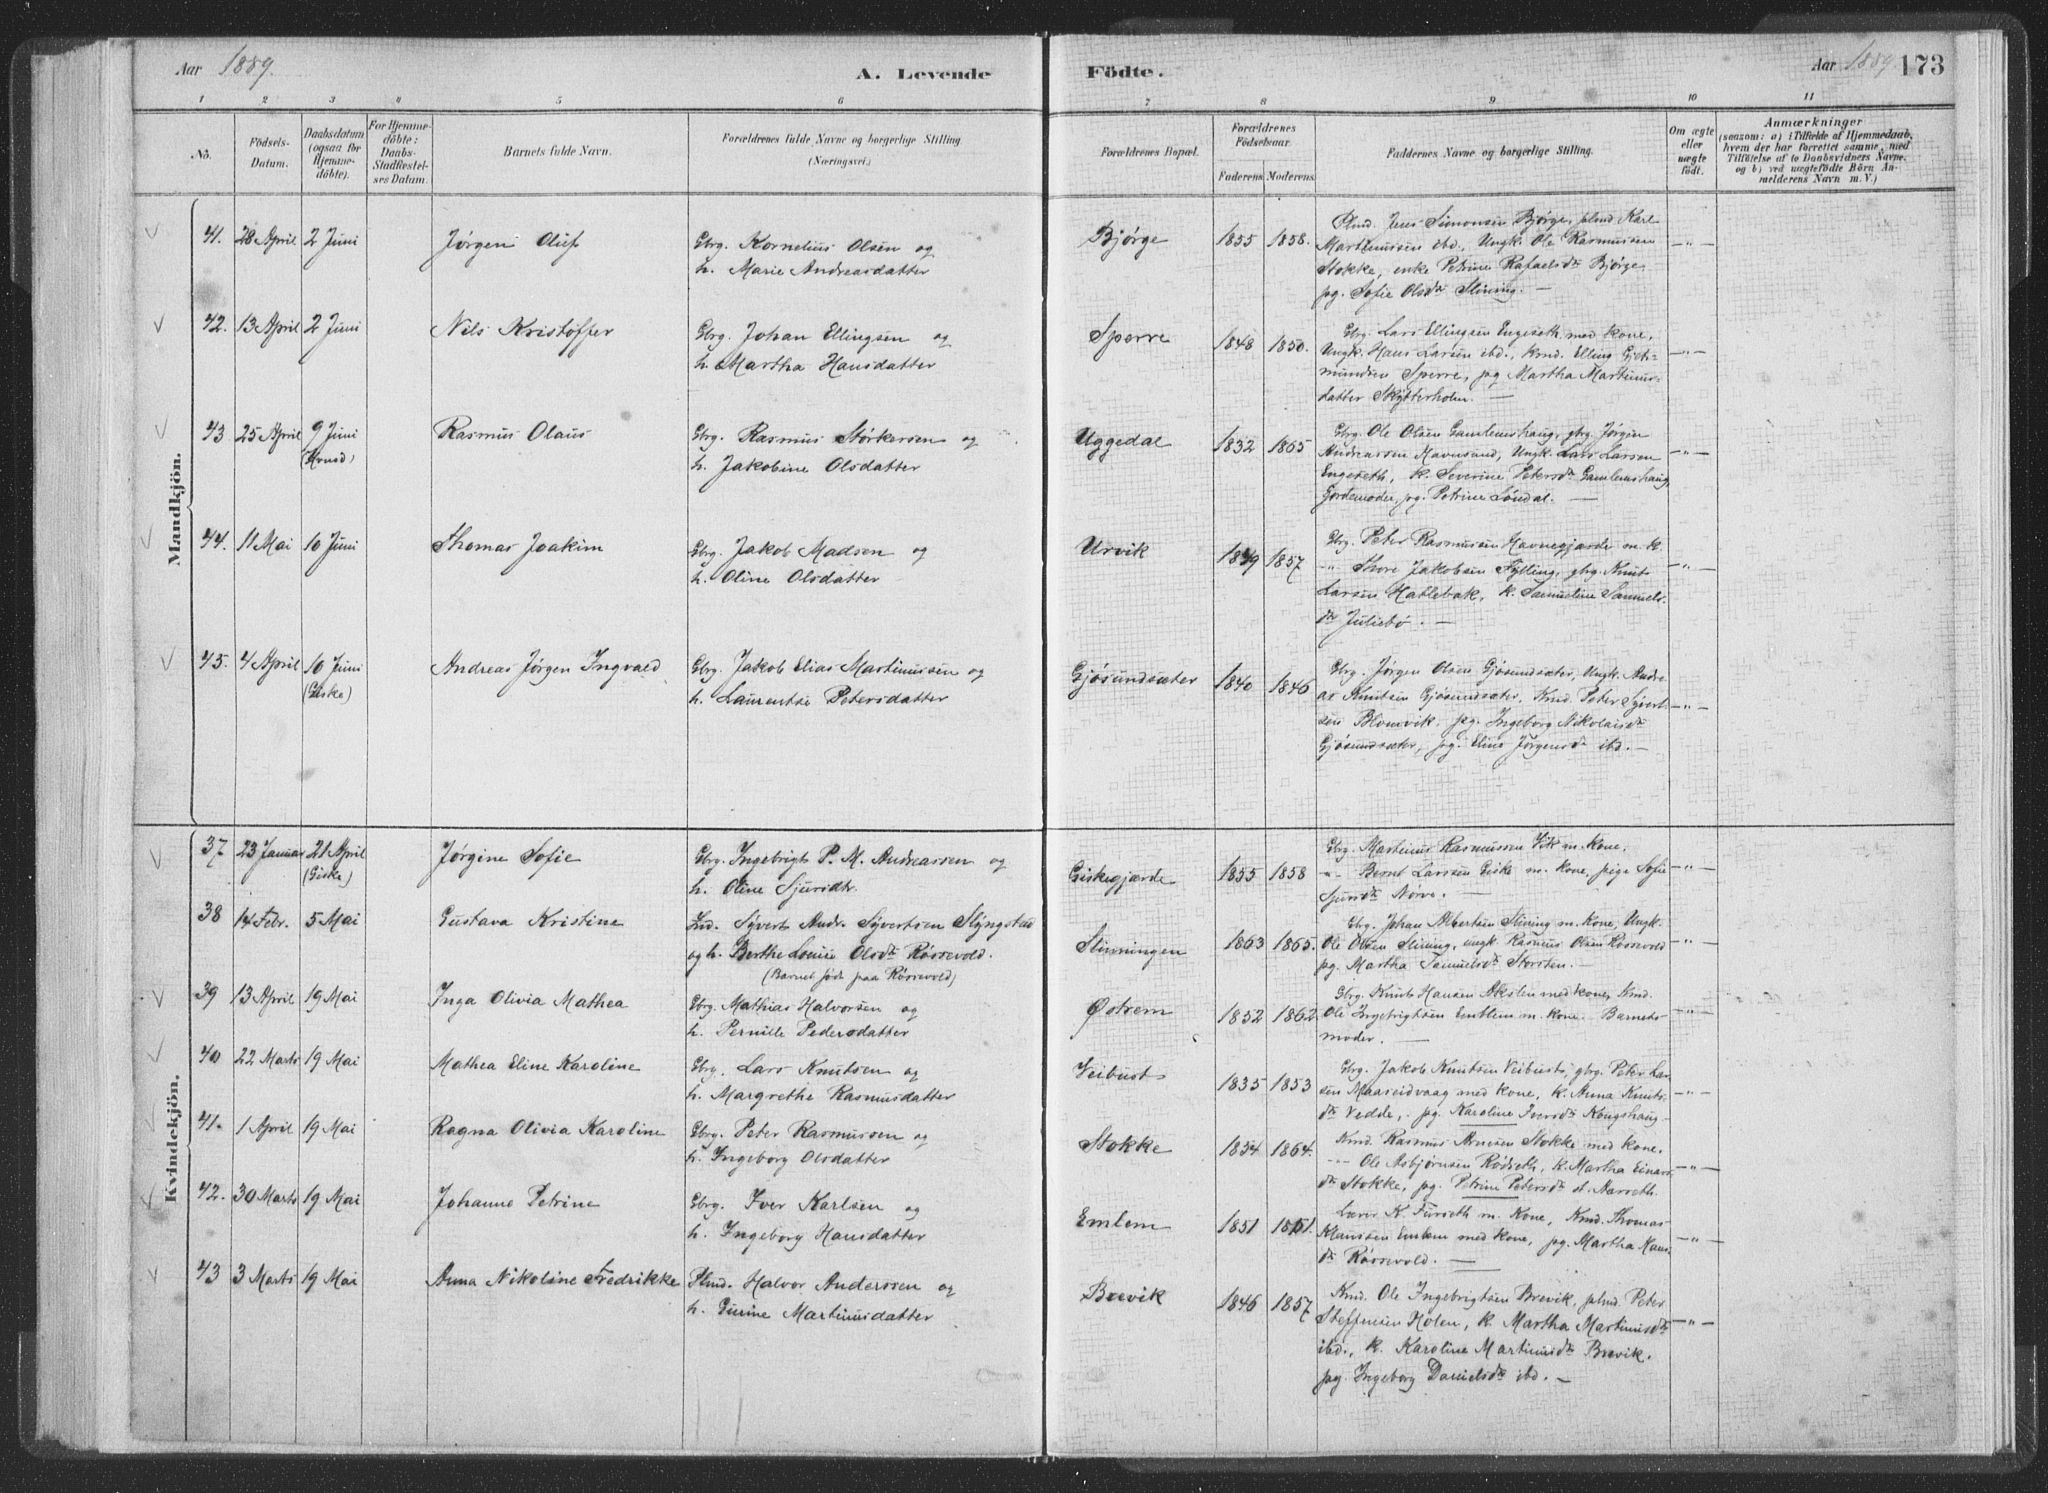 Aar 1889.
A. Levende
Födte.
Aar 1889
173
1 2 3 4 5 6 7 8 9 10 11
No.
Födsels-Datum.
Daabsdatum (ogsaa for Hjemme-döbte).
For Hjemme-döbte: Daabs-Stadfæstel-ses Datum.
Barnets fulde Navn.
Forældrenes fulde Navne og borgerlige Stilling (Næringsvei.)
Forældrenes Bopæl.
Forældrenes Födselsaar.
Faderens Moderens
Faddernes Navne og borgerlige Stilling.
Om ægte eller uægte födt.
Anmærkninger
(saasom: a) i Tilfælde af Hjemmedaab, hvem der har forrettet samme, med Tilföielse af to Daabsvidners Navne. og b) ved uægtefödte Börn An-melderens Navn m. V.)
Mandkjön.
41. 28 April 2 Juni Jørgen Oluf
Gbrg. Kornelius Olsen og
h. Marie Andreasdatter
Bjørge 1855 1858.
Plmd. Jens Simonsen Bjørge, plmd Karl
Marthinussen ibd., Ungk. Ole Rasmussen
Stokke, enke Petrine Rafaelsdtr Bjørge
pg. Sofie Olsdtr Slining. —
42. 13 April 2 Juni Nils Kristoffer
Gbrg. Johan Ellingsen og
h. Martha Hansdatter
Sperre 1848 1850.
Gbrg. Lars Ellingsen Engeseth med Kone,
Ungk. Hans Larsen ibd., Kmd. Elling Gjert-
mundsen Sperre, pg Martha Martinus-
datter Skytterholm. —
43 25 April 9 Juni (Hvnsd) Rasmus Olaus
Gbrg. Rasmus Størkersen og
h. Jakobine Olsdatter
Uggedal 1832 1865
Gbrg. Ole Olsen Gamlemshaug, gbrg. Jørgen
Andreassen Havnsund, Ungk. Lars Larsen
Engeseth, k. Severine Petersdtr Gamlemshaug
Gjordemoder, pg. Petrine Løndal. —
44. 11 Mai 10 Juni Thomas Joakim
Gbrg. Jakob Madsen og
h. Oline Olsdatter
Urvik 1857
Gbrg. Peter Rasmussen Havnegjærde m. k.
" Thore Jakobsen Fylling, gbrg. Knut
Larsen Hatlebak, k. Samueline Samuels-
dtr Juliebø. —
45. 4 April 10 Juni (Giske) Andreas Jørgen Ingvald
Gbrg. Jakob Elias Martinussen og
h. Laurentse Petersdatter
Gjøsundsæter 1840 1846
Gbrg. Jørgen Olsen Gjøsundsæter, Ungk. Andre-
as Knutsen Gjøsundsæter, Kmd. Peter Syvert-
sen Blomvik, pg. Ingeborg Nikolaisdtr
Gjøsundsæter, pg. Eline Jørgensdtr ibd. —
Kvindekjön.
37 23 Januar 21 April (Giske) Jørgine Sofie
Gbrg. Ingebrigt P. M. Andreassen og
h. Oline Sjursdtr.
Giskegjærde 1855 1858
Gbrg. Martinus Rasmussen Vik m. Kone.
" Bernt Larssen Giske m. Kone, pige Sofie
Sjursdtr Nørve. —
38 14 Febr. 5 Mai Gustava Kristine
Ind. Syvert Andr. Syvertsen Slyngstad
og h. Berthe Louise Olsdtr Røssevold.
(Barnet født paa Røssevold)
Slinningen 1863 1865.
Gbrg. Johan Albertsen Slining m. Kone, Ungk.
Ole Olsen Slining, ungk. Rasmus Olsen Røssevold
pg. Martha Samuelsdtr Storsten. —
39 13 April 19 Mai Inga Olivia Mathea
Gbrg. Mathias Halvorsen og
h. Pernille Pedersdatter
Østrem 1852 1862
Gbrg. Knut Hansen Akslen med Kone, Kmd.
Ole Ingebrigtsen Emblem m. Kone. Barnets
moder. —
40 22 Marts 19 Mai Mathea Eline Karoline
Gbrg. Lars Knutsen og
h. Margrethe Rasmusdatter
Veibust 1835 1853
Gbrg. Jakob Knutsen Veibust, gbrg. Peter Lar-
sen Maaseidvaag med Kone, k. Anna Knuts-
dtr Vedde, pg. Karoline Iversdtr Kongshaug
41. 1 April 19 Mai Ragna Olivia Karoline
Gbrg. Peter Rasmussen og
h. Ingeborg Olsdatter
Stokke 1834 1864.
Kmd. Rasmus Arnesen Stokke med Kone.
" Ole Asbjørnsen Rødseth, k. Martha Einars-
dtr Stokke, pg. Petrine Petersdtr st. Aarseth.
42. 30 Marts 19 Mai Johanne Petrine
Gbrg. Iver Karlsen og
h. Ingeborg Hansdatter
Emlem 1851 1851.
Lærer K. Furseth m. Kone, Kmd. Thomas
Klaussen Emlem med Kone, pg. Martha Hans-
dtr Røssevold. —
43 3 Marts 19 Mai Anna Nikoline Fredrikke
Plmd. Halvor Anderssen og
h. Gurine Martinusdatter
Brevik 1846 1857
Kmd. Ole Ingebrigtsen Brevik, plmd. Peter
Steffensen Holen, k. Martha Martinusdtr
ibd., k. Karoline Martinusdtr Brevik,
pg. Ingeborg Danielsdtr ibd. —